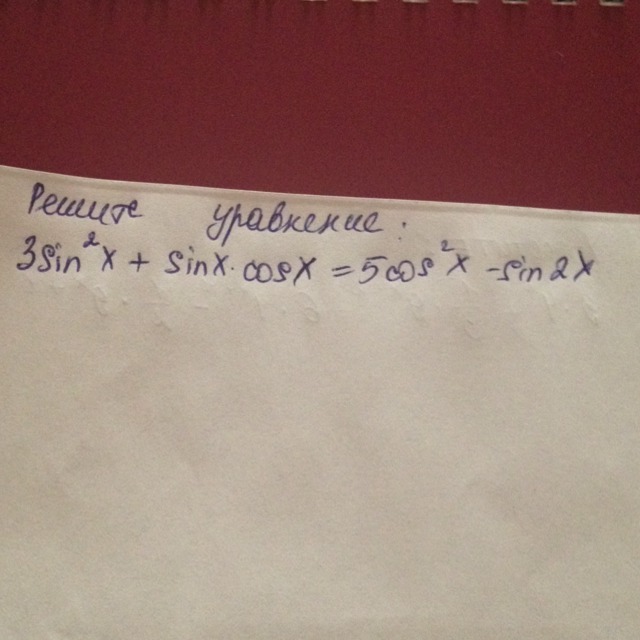 Решите уравнение:
3sin²x + sinx·cosx = 5cos²x - sin2x